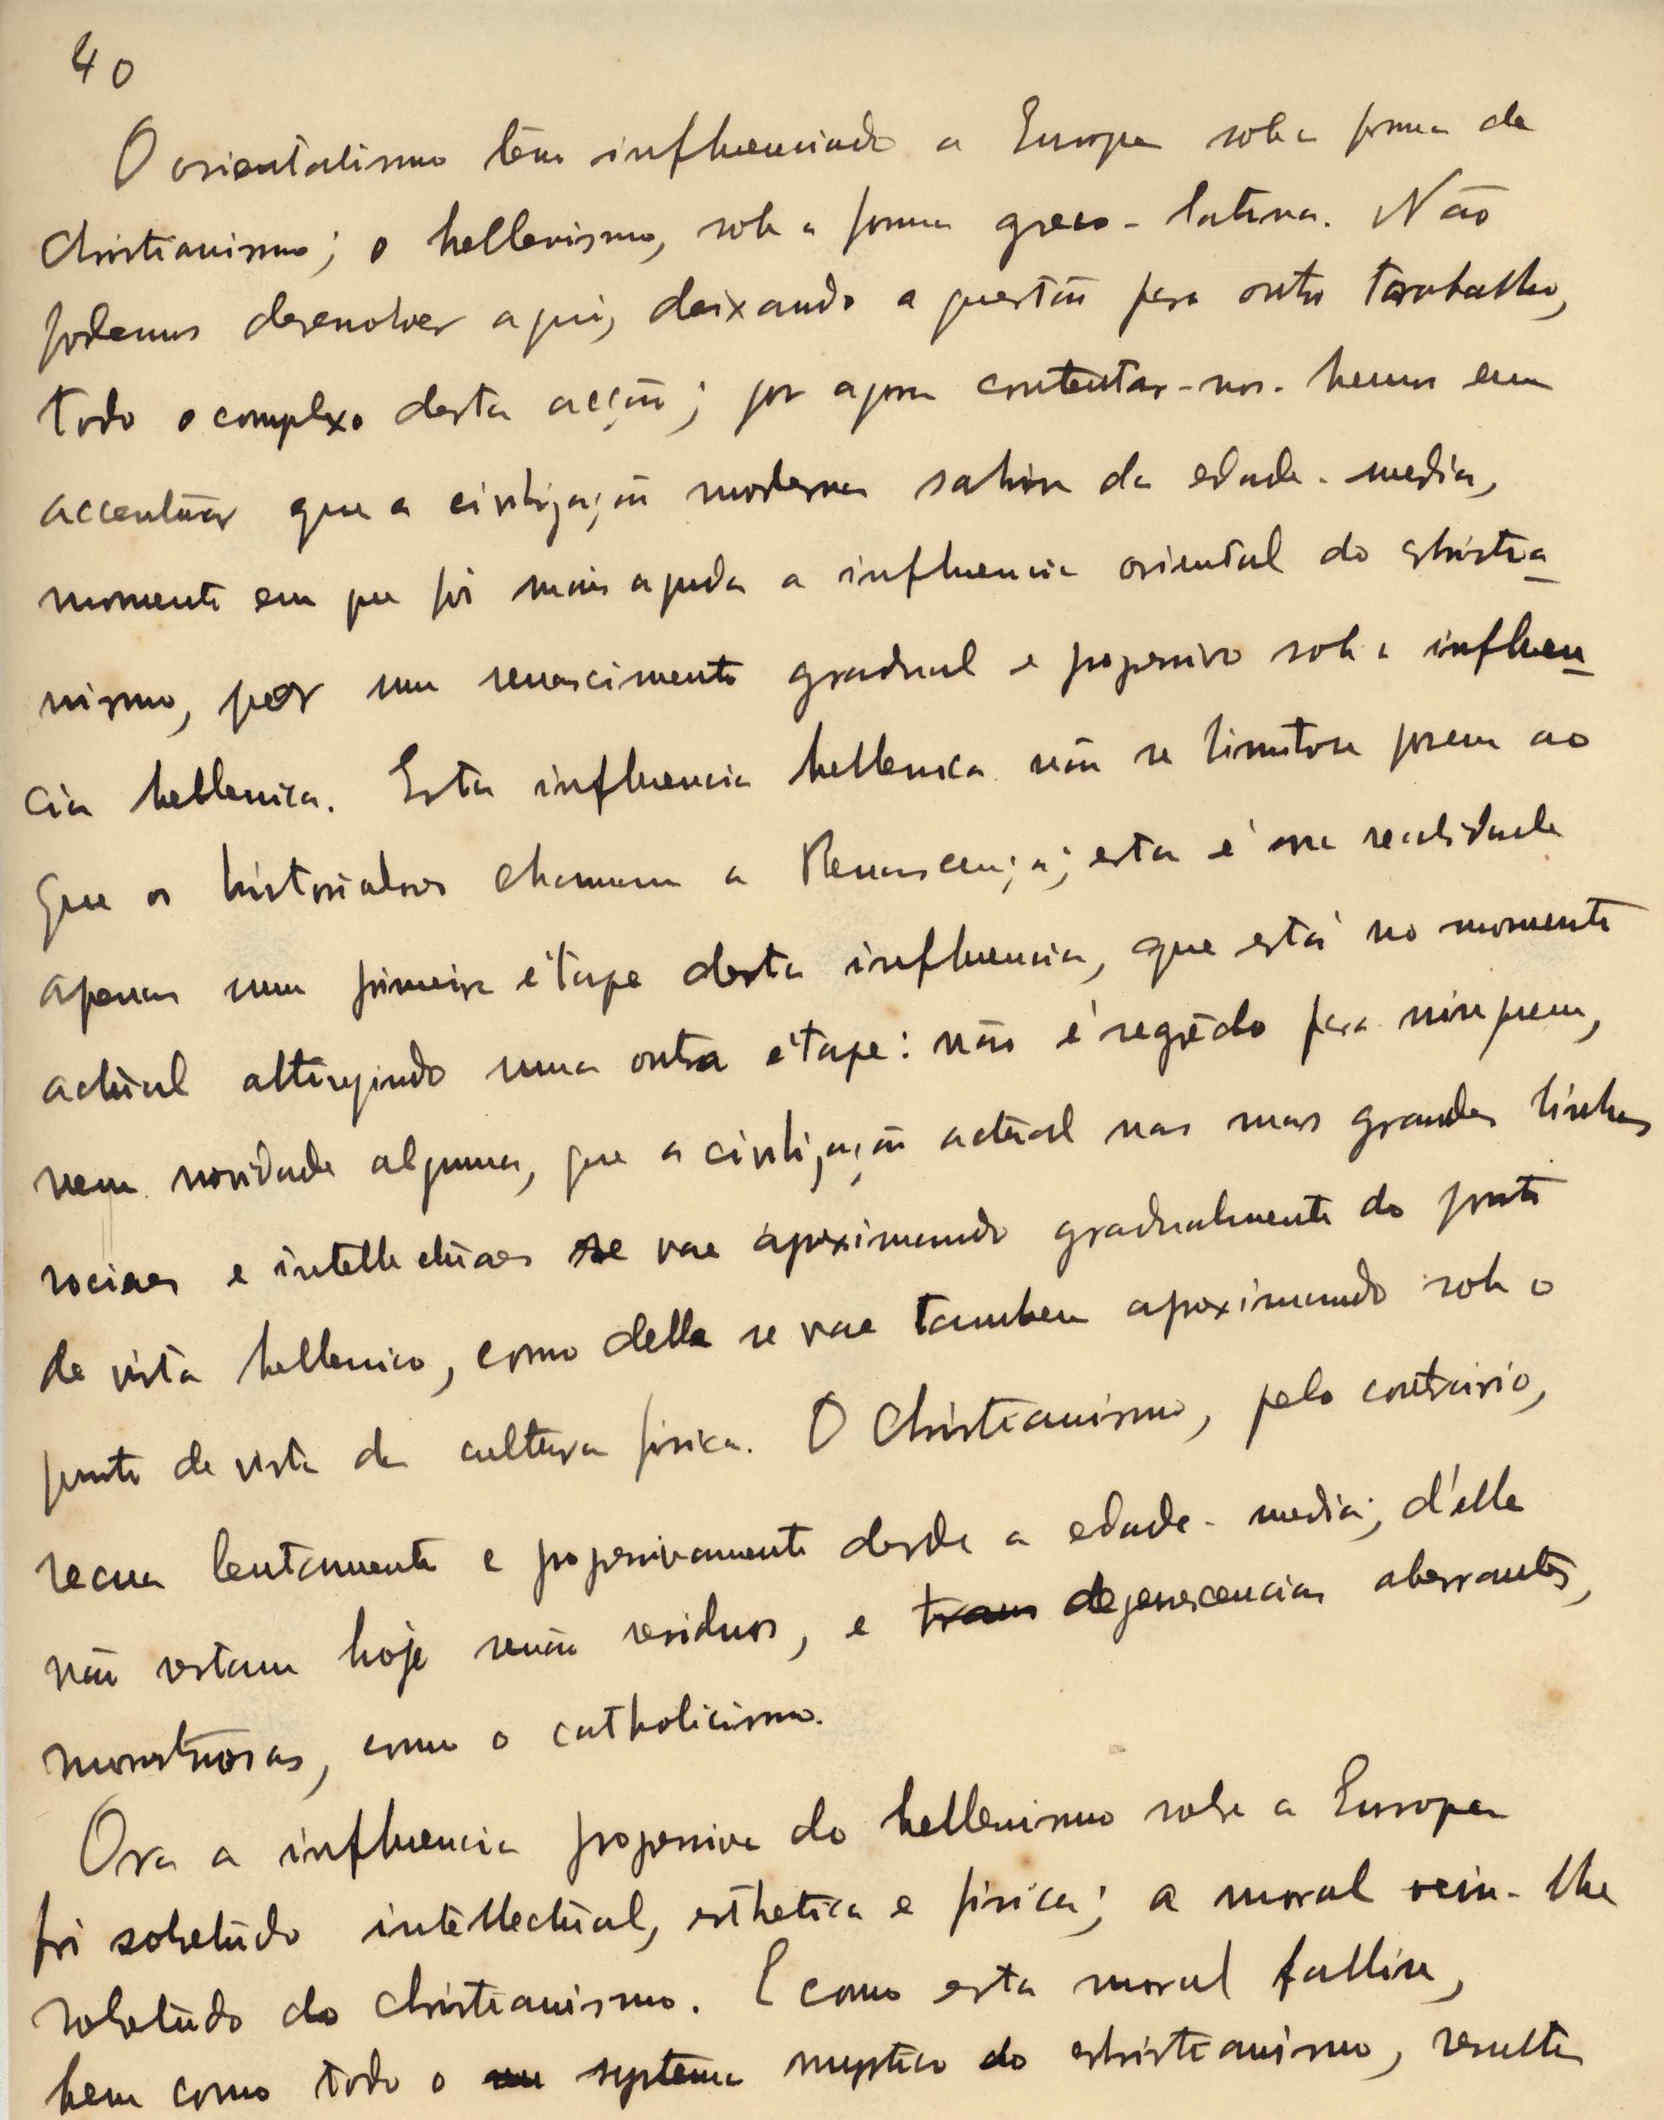 40
O orientalismo tem influenciado a Europa sob a forma de
Christianismo; o hellenismo, sob a forma greco-latina. Não
podemos desenvolver aqui, deixando a questão para outro trabalho,
todo o complexo desta acção; por agora contentar-nos-hemos em
accentuar que a civilização moderna sahiu da edade-media,
momento em que foi mais aguda a influencia oriental do christia
nismo, por um renascimento gradual e progressivo sob a influen
cia hellenica. Esta influencia hellenica não se limitou porem ao
que os historiadores chamam a Renascença; esta é na realidade
apenas uma primeira étape desta influencia, que está no momento
actual attingindo uma outra étape: não é segredo para ninguem,
nem novidade alguma, que a civilização actual nas suas grandes linhas
sociaes e intellectuaes se vae aproximando gradualmente do ponto
de vista hellenico, como delle se vae tambem aproximando sob o
ponto de vista da cultura fisica. O Christianismo, pelo contrario,
recua lentamente e progressivamente desde a edade-media; d'elle
não restam hoje senão residuos, e degenerescencias aberrantes,
monstruosas, como o catholicismo.
Ora a influencia progressiva do hellenismo sobre a Europa
foi sobretudo intellectual, esthetica e fisica; a moral veiu-lhe
sobretudo do christianismo. E como esta moral falliu,
bem como todo o systema mystico do christianismo, resulta